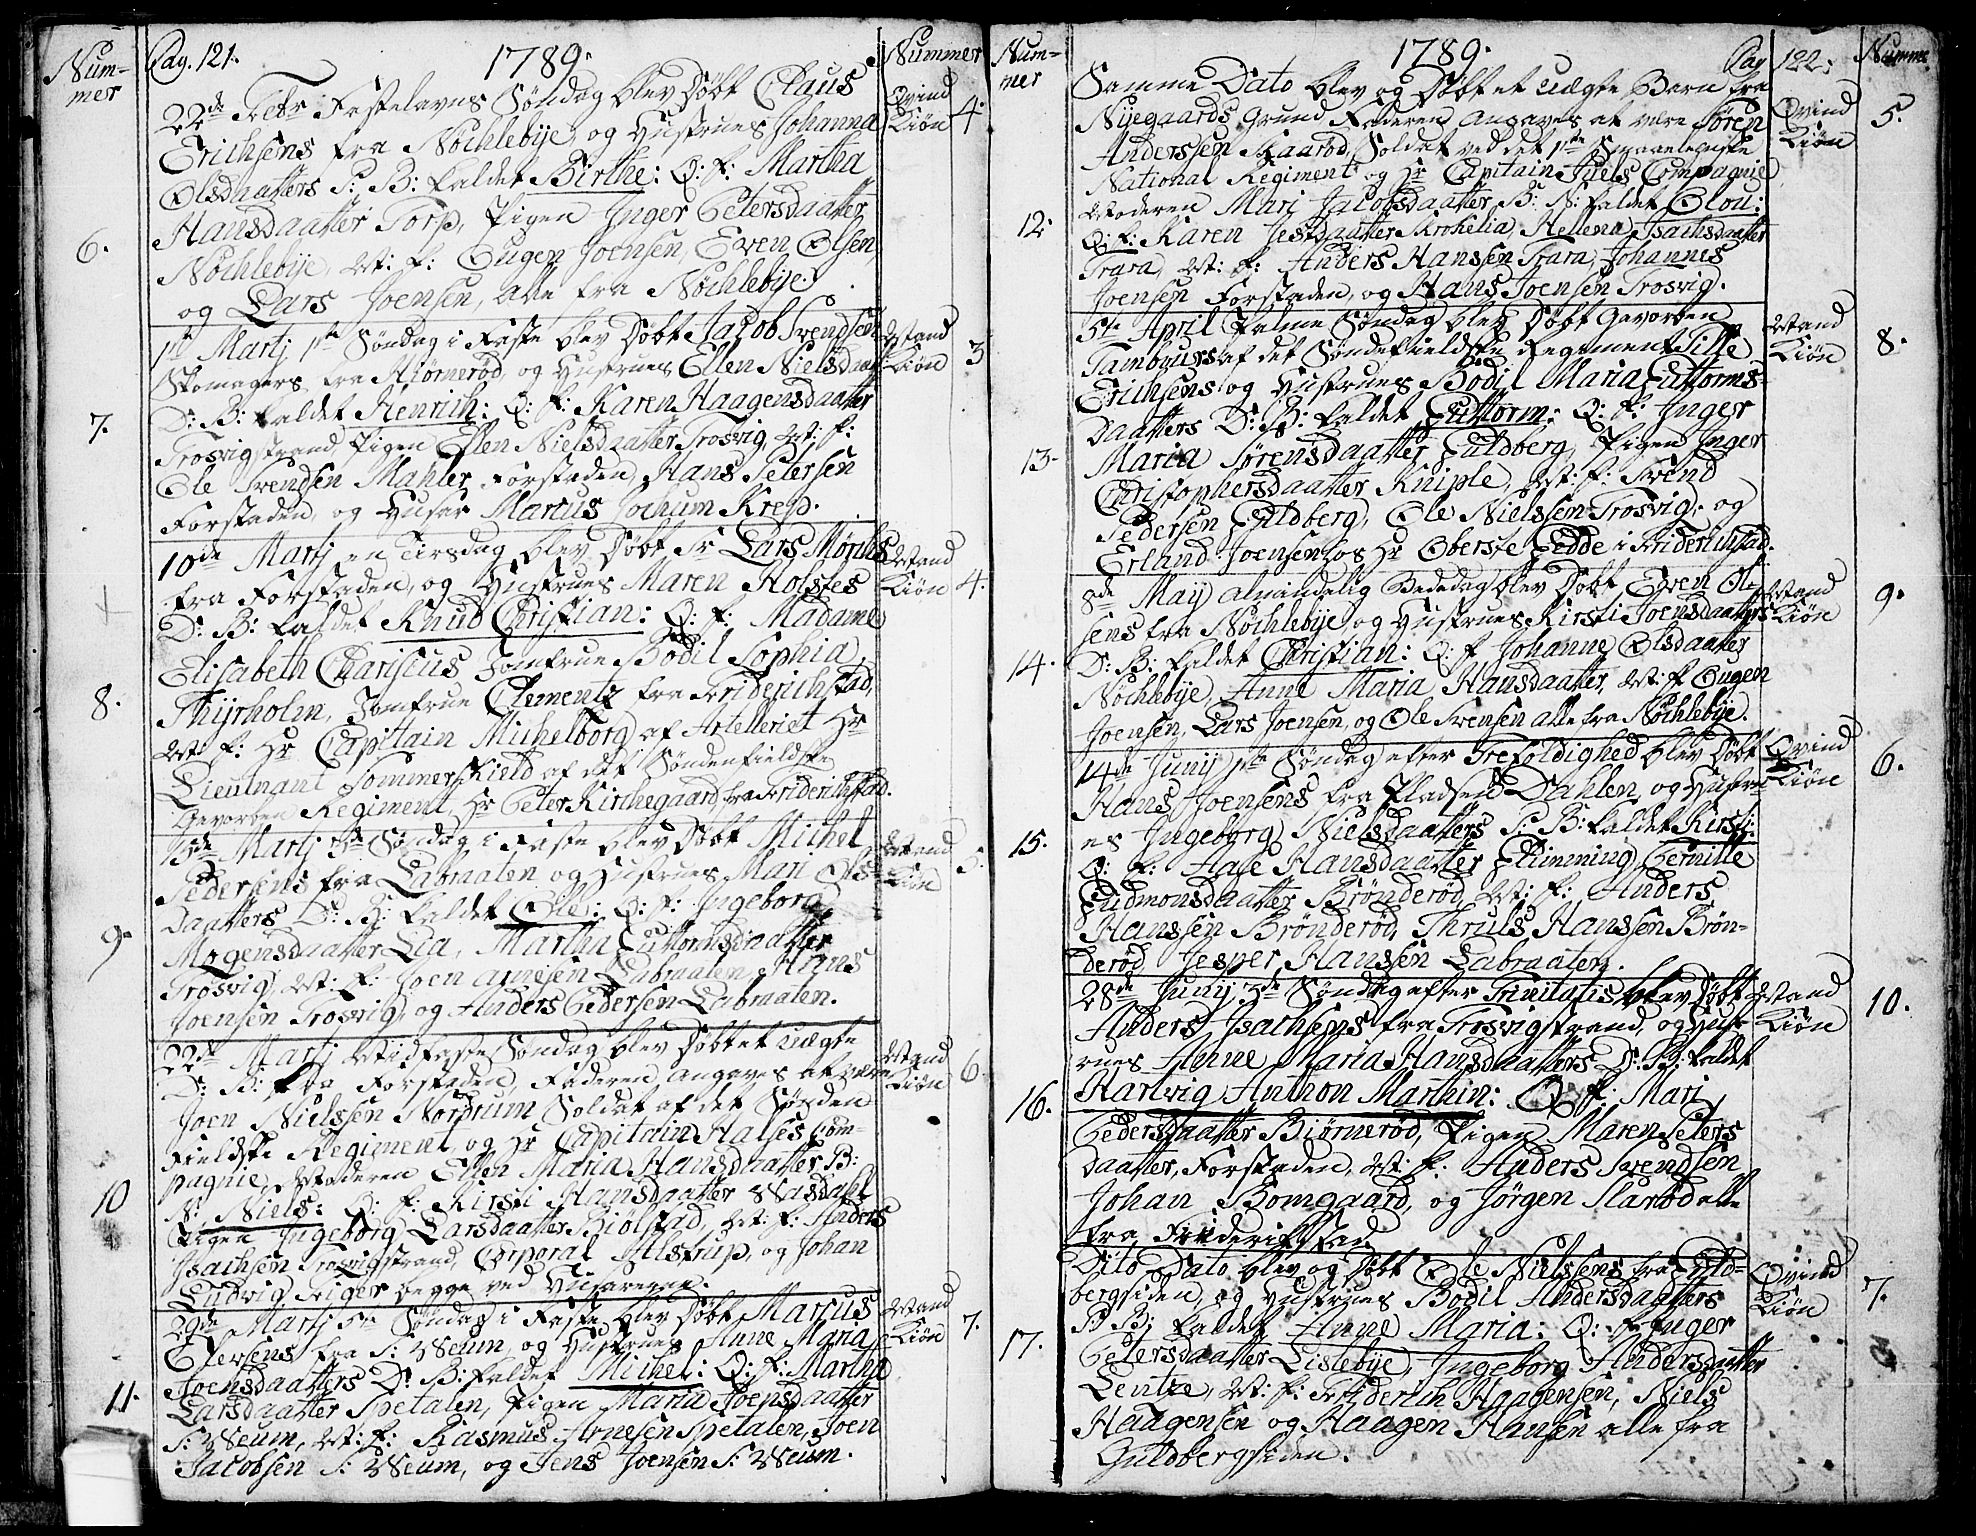 Num-
mer
Pag. 121.
1789.
Nummer
22de Febr Fastelavns Søndag blev Døbt Claus
Erichsens fra Nøchlebye, og Hustrues Johanna
Olsdaatters P: B: kaldet Birthe: Q: f: Martha
Hansdaatter Torp, Pigen Inger Petersdaatter
Nøchlebye, M: f: Gugen Joensen, Even Olsen
og Lars Joensen, alle fra Nøchlebye.
6.
Qvind
Kiøn
4.
1ste Martj 1ste Søndag i Faste blev Døbt Jacob Svendsen
Skomagers fra Biørnerød, og Hustrues Ellen Nielsdaat
D: B: kaldet Henrich: Q: f: Karen Haagensdaatter
Trosvigstrand, Pigen Ellen Nielsdaatter Trosvig, M: f:
Ole Svendsen Mahler Forstaden, Hans Petersen
Forstaden, og Husar Marcus Jochum Krep.
7.
Mand
Kiøn
3
10de Martj en Tirsdag blev Døbt Sr Lars Mørchs
fra Forstaden, og Hustrues Maren Holstes
D: B: kaldet Knud Christian: Q: f: Madame
Elisabeth Charisius Jomfrue Bodil Sophia
Thyrholm, Jomfrue Clementz fra Friderichstad,
M: f: Hr Capitain Michelborg af Artelleriet Hr
Lieutnant Sommerskield af det Søndenfieldske
Gevorben Regiment, Hr Peter Kirchegaard fra Friderichstad.
8.
Mand
Kiøn
4.
15de Martj 3de Søndag i Faste blev Døbt Michel
Pedersens fra Labraaten og Hustrues Mari Ols-
daatters D: B: kaldet Ole: Q: f: Ingeborg
Mogensdaatter Lia, Martha Guttormsdaatter
Trosvig, M: f: Joen Arnesen Labraaten, Hans
Joensen Trosvig, og Anders Pedersen Labraaten.
9.
Mand
Kiøn
5.
22de Martj Midfaste Søndag blev Døbt et uægte
D: B: fra Forstaden, Faderen angaves at være
Joen Nielssen Nordrum Soldat af det Sønden
Fieldske Regiment, og Hr Capitain Halses Com-
pagnie, Moderen Ellen Maria Hansdaatter B:
N: Niels: Q: f: Kirsti Hansdaatter Aasdahl
Pigen Ingeborg Larsdaatter Kiølstad, M: f: Anders
Isachsen Trosvigstrand, Corporal Alstrup, og Johan
Ludvig Feiger begge ved Husarerne.
10
Mand
Kiøn
6.
29de Martj 5te Søndag i Faste blev Døbt Marcus
Petersens fra S: Weum, og Hustrues Anne Maria
Joensdaatters D: B: kaldet Michel: Q: f: Martha
Larsdaatter Spetalen, Pigen Maria Joensdaatter
S: Weum, M: f: Rasmus Arnesen Spetalen, Joen
Jacobsen S: Weum, og Jens Joensen S: Weum.
11.
Mand
Kiøn
7.
Num-
mer
1789.
Pag 122.
Numme
Samme Dato blev og Døbt et uægte Barn fra
Nyegaards Grund, Faderen angaves at være Søren
Anderssen Skaarød, Soldat ved det 1ste Smaalehnske
National Regiment og Hr Capitain Juels Compagnie
Moderen Mari Jacobsdaatter B: N: kaldet Olou:
Q: f: Karen Jespdaatter Krohelia, Hellena Isachsdaatter
Trara, M: f: Anders Hansen Trara, Johannes
Joensen Forstaden, og Hans Joensen Trosvig.
12
Qvind
Kiøn
5.
5te April Palme Søndag blev Døbt Gevorben
Tambours af det Søndefieldske Regiment Tille
Erichsens og Hustrues Bodil Maria Guttorms-
daatters D: B: kaldet Guttorm: Q: f: Inger
Maria Sørensdaatter Guldberg, Pigen Inger
Christophersdaatter Kniple, M: f: Svend
Pedersen Guldberg, Ole Nielssen Trosvig, og
Erland Joensen hos Hr Oberste Gedde i Friderichstad.
13.
Mand
Kiøn
8.
8de Maij almindelig Bededag blev Døbt Even Ol-
sens fra Nøchlebye og Hustrues Kirsti Joensdaatters
D: B: kaldet Christian: Q: f Johanne Olsdaatter
Nøchlebye, Anne Maria Hansdaatter, M: f: Gugen
Joensen, Lars Joensen, og Ole Svensen alle fra Nøchlebye.
14.
Mand
Kiøn
9.
14de Junij 1ste Søndag efter Trefoldighed blev Døbt
Hans Joensens fra Pladsen Dahlen, og Hustru-
es Ingeborg Nielsdaatters P: B: kaldet Kirsti:
Q: f: Hase Hansdaatter Flimming, Pernille
Gudmonsdaatter Brønderød, M: f: Anders
Hanssen Brønderød, Thruls Hanssen Brøn-
derød, Jesper Hanssen Labraaten.
15.
Qvind
Kiøn
6.
28de Junij 3de Søndag efter Trinitatis blev Døbt
Anders Isachsens fra Trosvigstrand, og Hust-
rues Anne Maria Hansdaatters D: B: kaldet
Hartvig Anthon Marthin: Q: f: Mari
Pedersdaatter Biørnerød, Pigen Maren Peters
daatter, Forstaden, M: f: Anders Svendsen
Johan Bomgaard, og Jørgen Slarbod alle
fra Friderichstad.
16.
Mand
Kiøn
10.
Dito Dato blev og Døbt Ole Nielssens fra Guld-
bergsiden, og Hustrues Bodil Andersdaatters
P: B: kaldet Anne Maria: Q: f: Inger
Petersdaatter Lislebye, Ingeborg Andersdaatter
Lentze, M: f: Friderich Haagensen, Niels
Haagensen og Haagen Hansen alle fra
Guldbergsiden.
17.
Qvind
Kiøn
7.